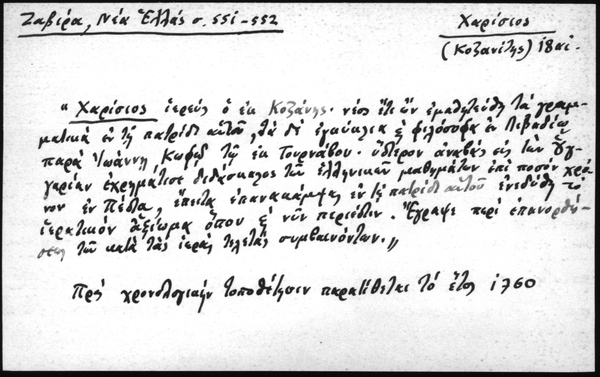 Ζαβίρα, Νέα Ἑλλάς σ. 551-552
Χαρίσιος
(Κοζανίτης) 18 αἰ.
" Χαρίσιος ἱερεύς ὁ ἐκ Κοζάνης· νέος ἔτι ὤν ἐμαθητεύθη τά γραμ-
ματικά ἐν τῇ πατρίδι αὐτοῦ, τά δέ ἐγκύκλια ἐν Λιβαδίῳ
παρά Ἰωάννῃ τῷ ἐκ Τουρνάβου· ὕστερον ἀναβάς εἰς τήν Οὐγ-
γαρίαν ἐχρημάτισε διδάσκαλος τῶν ἑλληνικῶν μαθημάτων ἐπί ποσόν χρό-
νον ἐν Πέστᾳ, ἔπειτα ἐπανακάμψας ἐν τῇ πατρίδι αὐτοῦ ἐνεδύθη τό
ἱερατικόν ἀξίωμα ὅπου καί νῦν περιέστιν. Ἔγραψε περί ἐπανορθώ-
σεως τῶν κατά τάς ἱεράς τελετάς συμβαινόντων."
Πρός χρονολογικήν τοποθέτησιν παρατίθεται τό ἔτος 1760